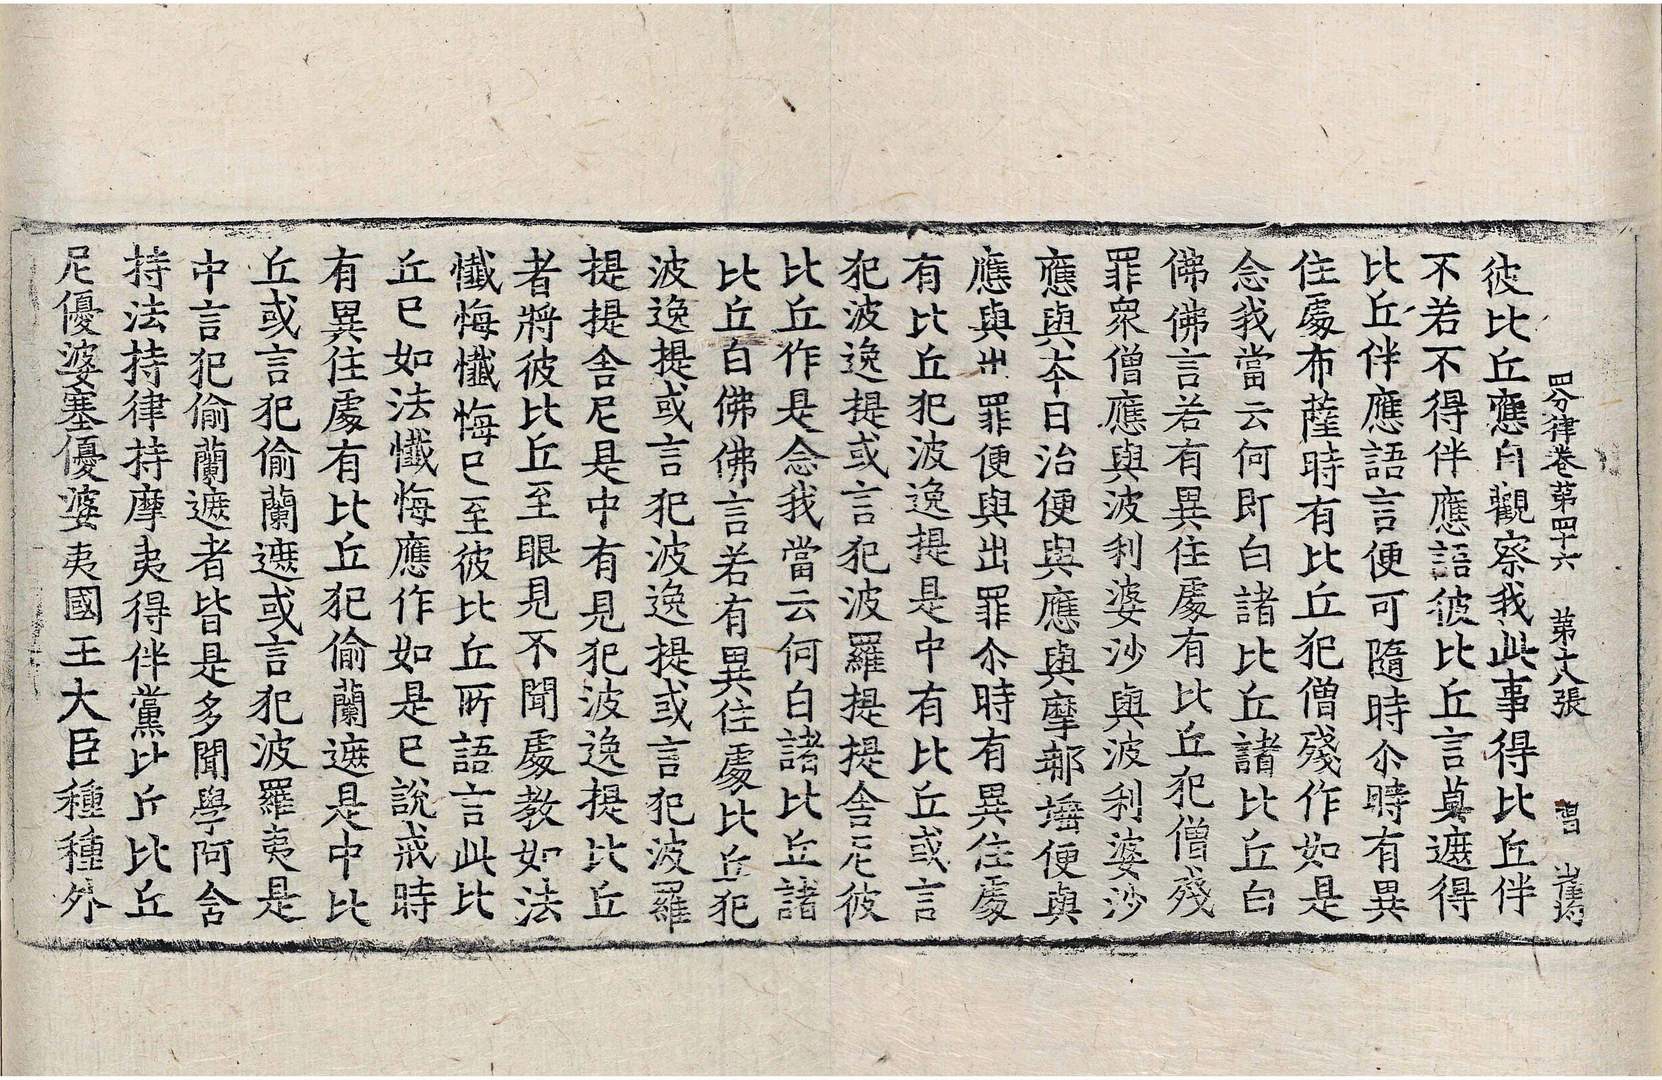 四分律卷第四十六 第十八張 習 崔均
彼比丘應自觀察我此事得比丘伴
不若不得伴應語彼比丘言莫遮得
比丘伴應語言便可隨時尒時有異
住處布薩時有比丘犯僧殘作如是
念我當云何即白諸比丘諸比丘白
佛佛言若有異住處有比丘犯僧殘
罪衆僧應與波利婆沙與波利婆沙
應與本日治便與應與摩那埵便與
應與出罪便與出罪尒時有異住處
有比丘犯波逸提是中有比丘或言
犯波逸提或言犯波羅提提舍尼彼
比丘作是念我當云何白諸比丘諸
比丘白佛佛言若有異住處比丘犯
波逸提或言犯波逸提或言犯波羅
提提舍尼是中有見犯波逸提比丘
者將彼比丘至眼見不聞處教如法
懺悔懺悔已至彼比丘所語言此比
丘已如法懺悔應作如是已說戒時
有異住處有比丘犯偷蘭遮是中比
丘或言犯偷蘭遮或言犯波羅夷是
中言犯偷蘭遮者皆是多聞學阿含
持法持律持摩夷得伴黨比丘比丘
尼優婆塞優婆夷國王大臣種種外